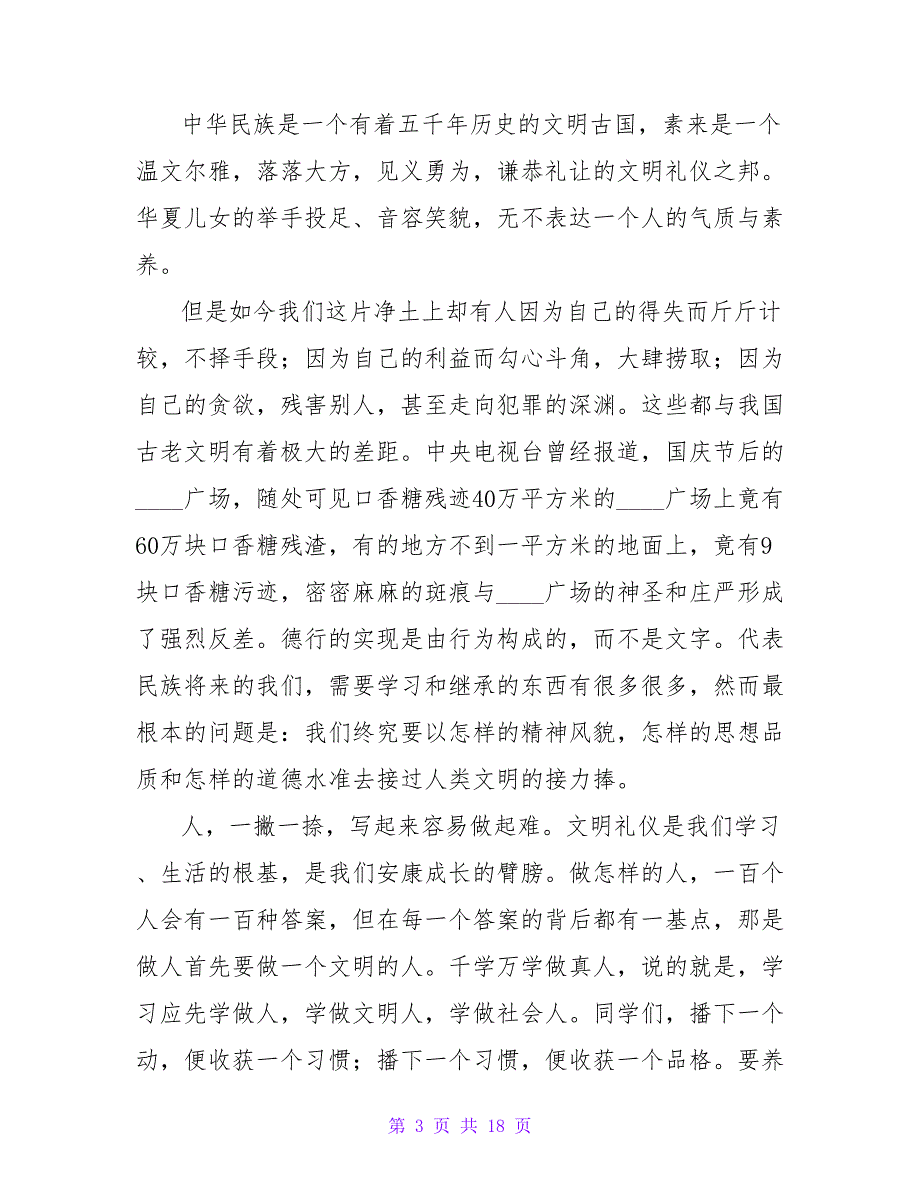 中华民族是一个有着五千年历史的文明古国，素来是一个
温文尔雅，落落大方，见义勇为，谦恭礼让的文明礼仪之邦。
华夏儿女的举手投足、音容笑貌，无不表达一个人的气质与素
养。
但是如今我们这片净土上却有人因为自己的得失而斤斤计
较，不择手段；因为自己的利益而勾心斗角，大肆捞取；因为
自己的贪欲，残害别人，甚至走向犯罪的深渊。这些都与我国
古老文明有着极大的差距。中央电视台曾经报道，国庆节后的
____广场，随处可见口香糖残迹40万平方米的____广场上竟有
60万块口香糖残渣，有的地方不到一平方米的地面上，竟有9
块口香糖污迹，密密麻麻的斑痕与____广场的神圣和庄严形成
了强烈反差。德行的实现是由行为构成的，而不是文字。代表
民族将来的我们，需要学习和继承的东西有很多很多，然而最
根本的问题是：我们终究要以怎样的精神风貌，怎样的思想品
质和怎样的道德水准去接过人类文明的接力捧。
人，一撇一捺，写起来容易做起难。文明礼仪是我们学习
、生活的根基，是我们安康成长的臂膀。做怎样的人，一百个
人会有一百种答案，但在每一个答案的背后都有一基点，那是
做人首先要做一个文明的人。千学万学做真人，说的就是，学
习应先学做人，学做文明人，学做社会人。同学们，播下一个
动，便收获一个习惯；播下一个习惯，便收获一个品格。要养
第 3 页 共 18 页